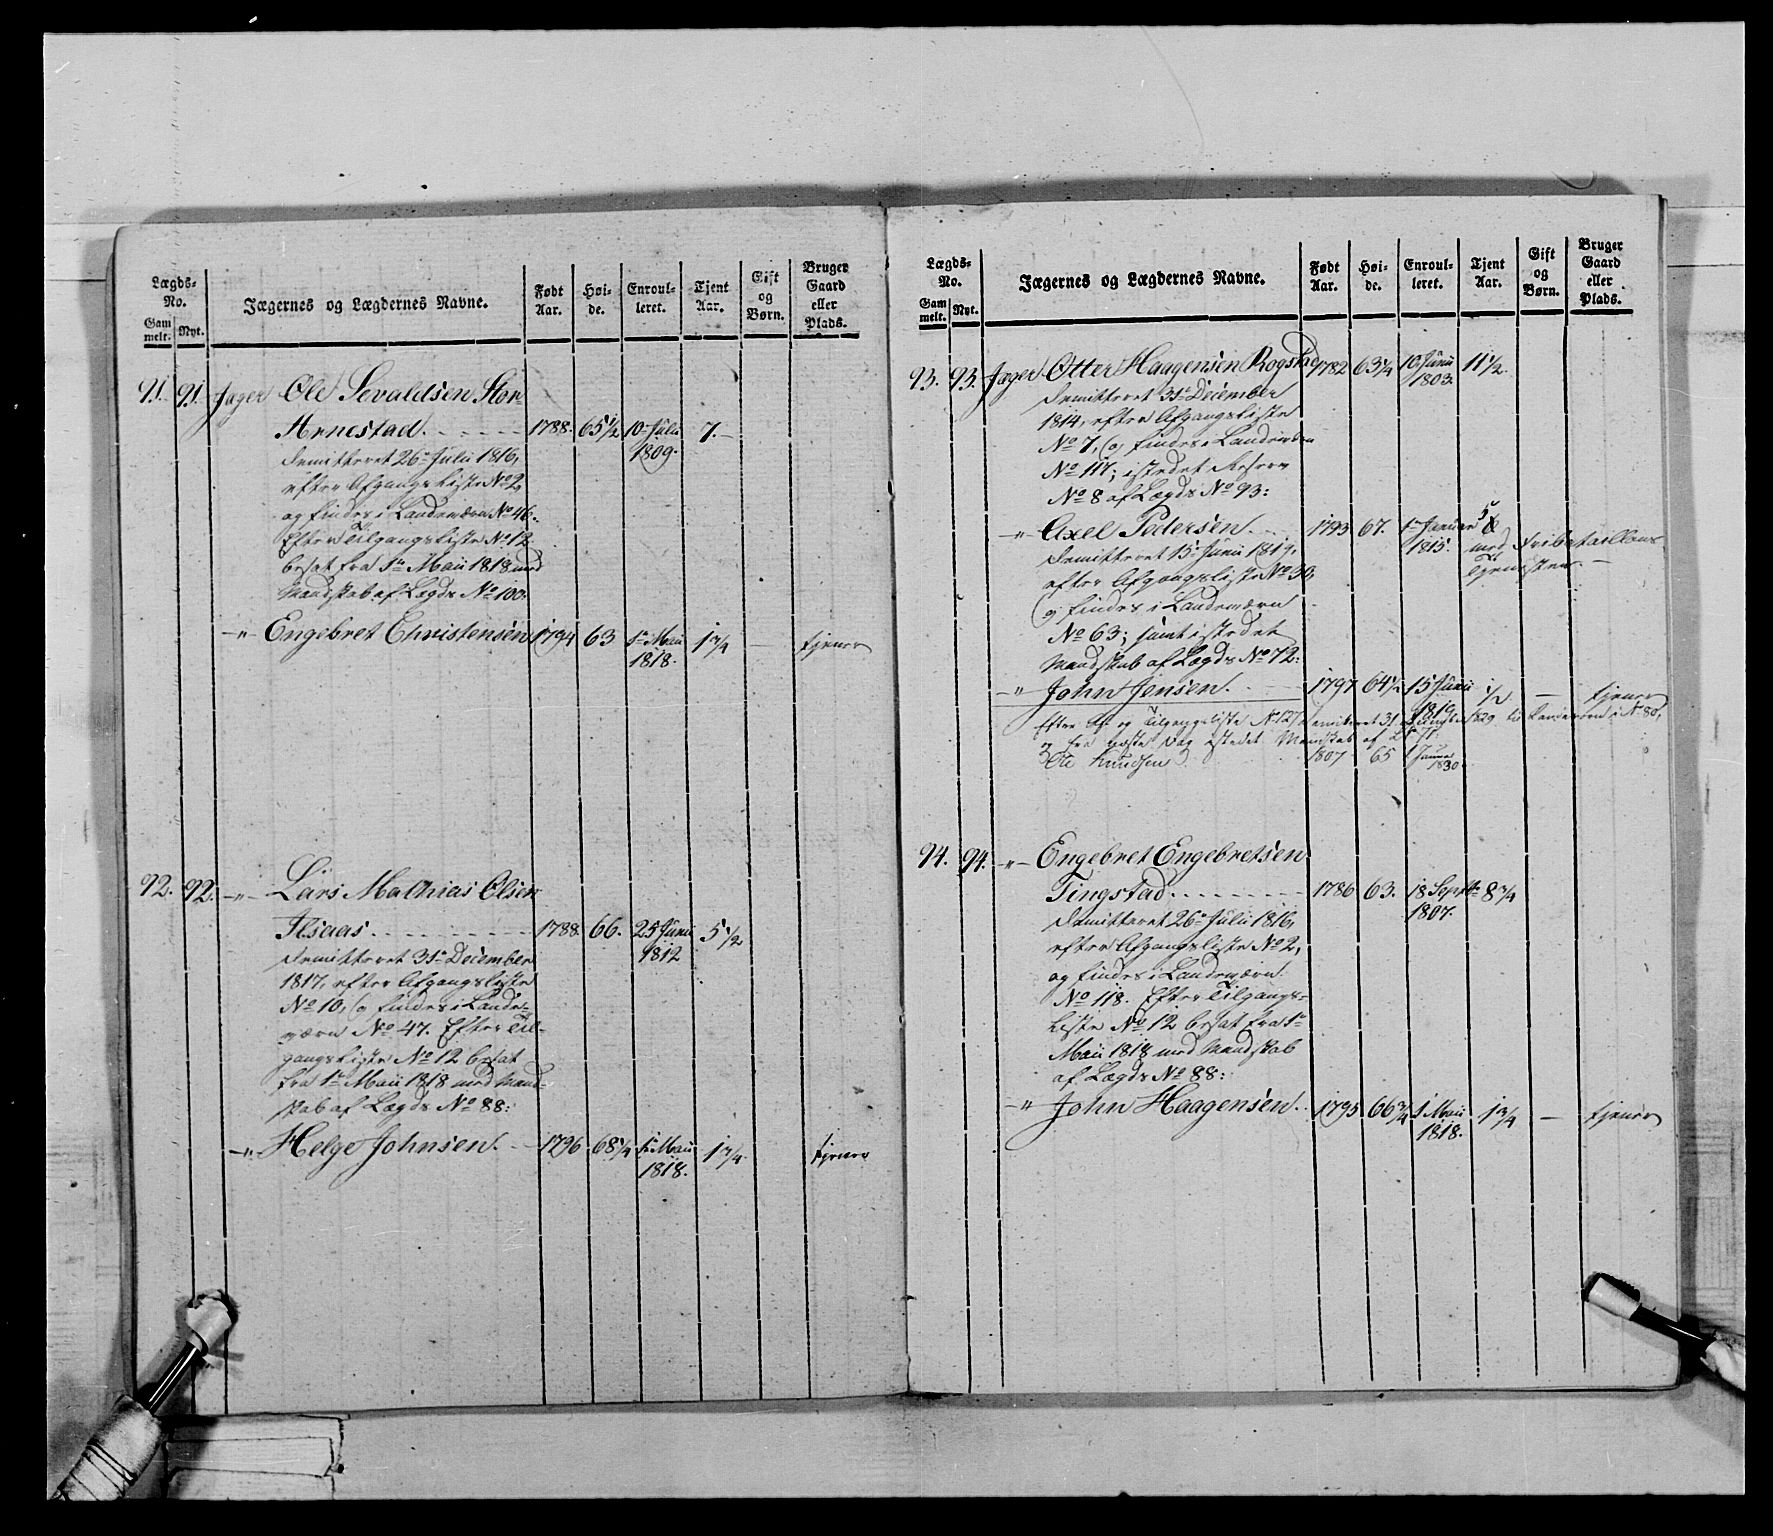 Lægds-No.
Gam melt.
Nyt.
Jægernes og Lægdernes Navne.
Født Aar.
Høi-de.
Enroul-leret.
Tjent Aar.
Gift og Børn.
Bruger Gaard eller Plads.
91. 91. Jæger Ole Sevaldsen Stor-
Arnestad. 1788. 65 1/2 10 Julii 1809. 7.
demitteret 26de Julii 1816,
efter Afgangsliste No 2,
og findes i Landeværn No 46.
Efter Tilgangsliste No 12
besat fra 1te Maii 1818 med
Mandskab af Lægds No 100:
-"- Engebret Christensen 1794 63 1te Maii 1818. 1 3/4 — tjener
92. 92. -"- Lars Mathias Olsen
Ilsaas. 1788. 66. 25 Junii 1812 5 1/2
demitteret 31te December
1817, efter Afgangsliste
No 10, og findes i Lande-
værn No 47. Efter Til-
gangsliste No 12 besat
fra 1te Maii 1818 med Mand-
skab af Lægds No 88:
-"- Helge Johnsen. 1796 68 1/4 1te Maii 1818. 1 3/4. tjener
Lægds-No.
Gam melt.
Nyt.
Jægernes og Lægdernes Navne.
Født Aar.
Høi-de.
Enroul-leret.
Tjent Aar.
Gift og Børn.
Bruger Gaard eller Plads.
93. 93. Jæger Otter Haagensen 1782 63 1/4 10 Junii 1803. 11 1/2.
demitteret 31te December
1814, efter Afgangsliste
No 7, og findes i Landeværn
No 117; istedet Reserv
No 8 af Lægds No 93:
-"- Axel Pedersen. 1793 67. 1te Januar 1815. 5 med Fribataillons
Tjenesten. —
demitteret 15de Junii 1819,
efter Afgangsliste No 30,
og findes i Landeværn
No 63; samt istedet
Mandskab af Lægds No 72:
-"- John Jensen. 1797 64 1/2 15 Junii 1819 1/2 — tjener
Efter Af og Tilgangsliste No 127 demitteret 31 1829 til Landeværn i No 80,
og fra næste Dag istedet Mandskab af L. 71
Ole Knudsen 1807 65 1 Januar 1830
94. 94. -"- Engebret Engebretsen
Tingstad. 1786 63. 18 Septbr 1807. 8 3/4
demitteret 26de Julii 1816,
efter Afgangsliste No 2,
og findes i Landeværn
No 118. Efter Tilgangs-
liste No 12 besat fra 1te
Maii 1818 med Mandskab
af Lægds No 88:
-"- John Haagensen. 1795 66 3/4 1 Maii 1818. 1 3/4 — tjener